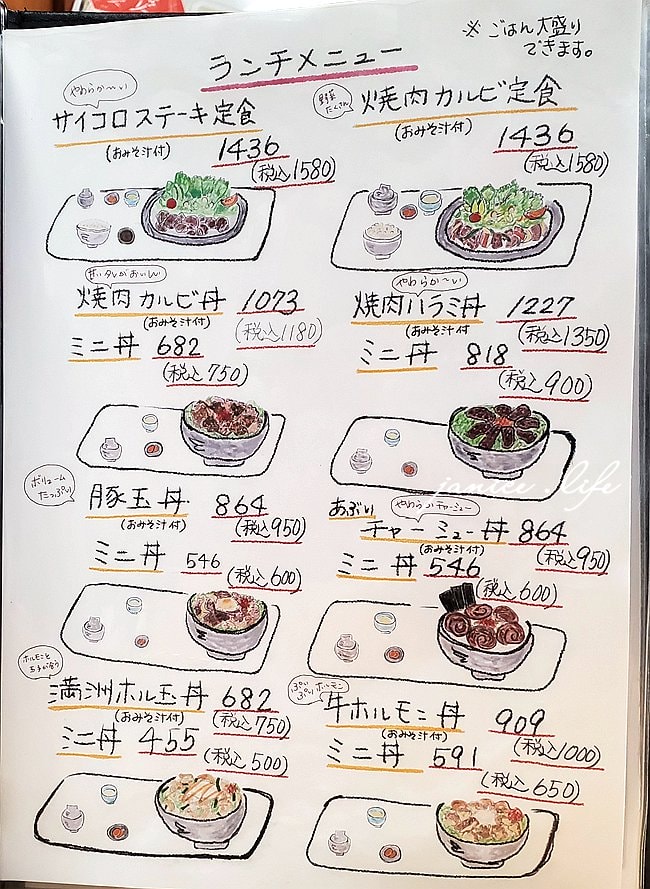 ※ごはん大盛り
できます。
ランチメニュー
やわらか〜い
サイコロステーキ定食
(おみそ汁付)
1436
(税込1580)
野菜
たくさん
焼肉カルビ定食
(おみそ汁付)
1436
(税込1580)
甘いタレがおいしい
焼肉カルビ丼 1073
(おみそ汁付)
(税込1180)
ミニ丼 682
(税込750)
やわらか〜い
焼肉ハラミ丼 1227
(おみそ汁付)
(税込1350)
ミニ丼 818
(税込900)
ボリューム
たっぷり
豚玉丼 864
(おみそ汁付)
(税込950)
ミニ丼 546
(税込600)
あぶり
やわらかチャーシュー
チャーシュー丼 864
(おみそ汁付)
(税込950)
ミニ丼 546
(税込600)
ホルモンと
玉子が合う
満洲ホル玉丼 682
(おみそ汁付)
(税込750)
ミニ丼 455
(税込500)
ぷりぷりホルモン
牛ホルモン丼 909
(おみそ汁付)
(税込1000)
ミニ丼 591
(税込650)
janice.life